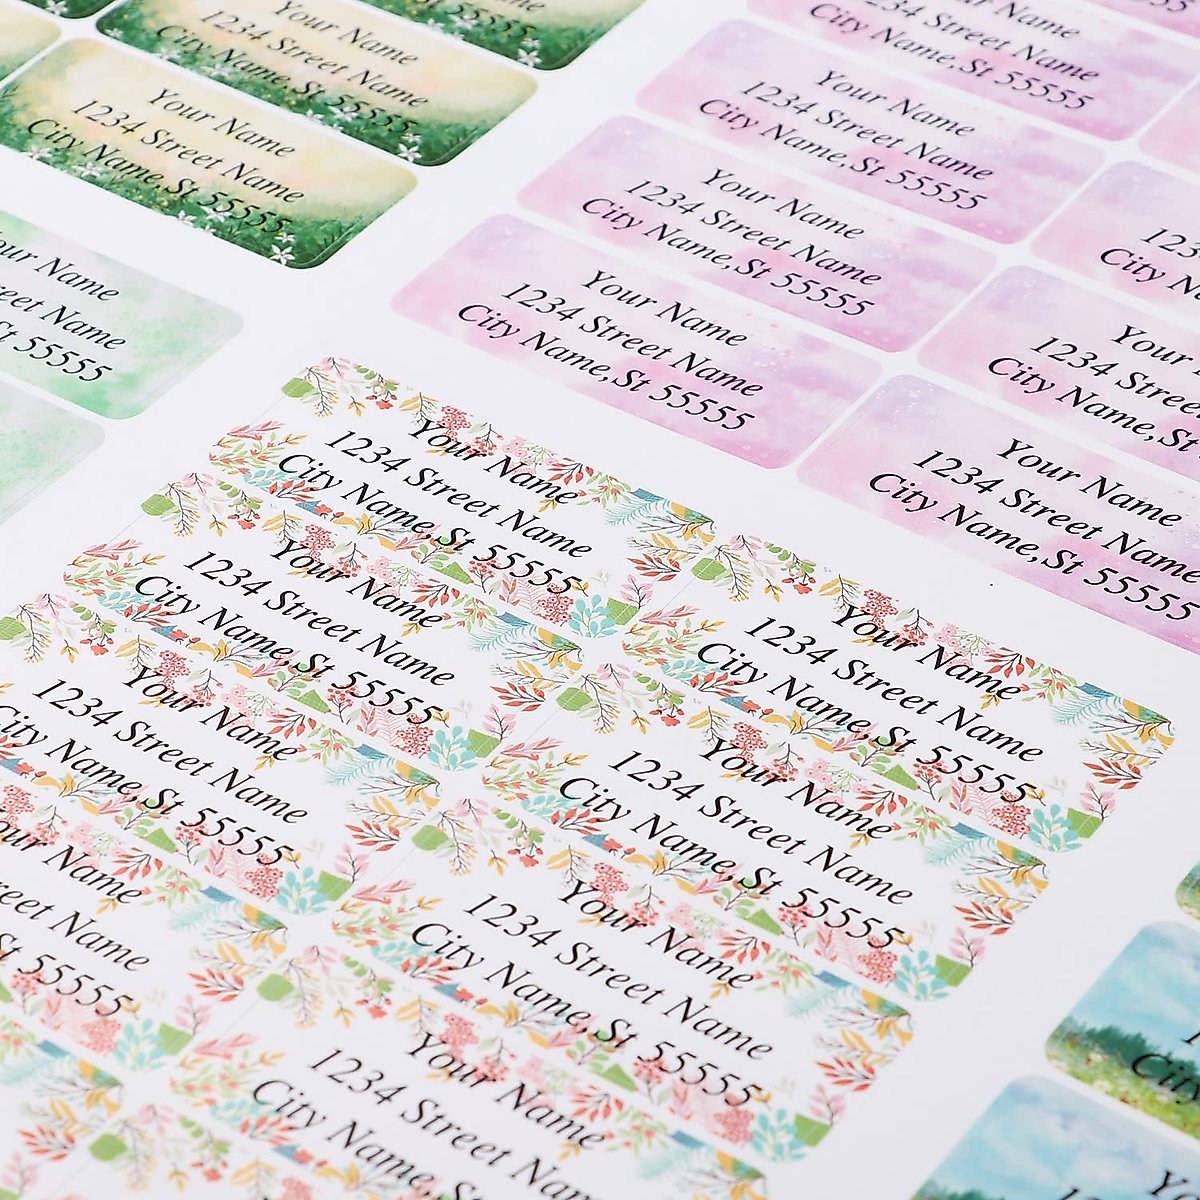 Your Name
1234 Street Name
City Name,St 55555
Your Name
1234 Street Name
City Name,St 55555
Name
Street Name
St 55555
1234 Street Name
City Name,St 55555
Your Name
1234 Street Name
City Name,St 55555
Your Name
1234 Street Name
City Name,St 55555
Your Name
1234 Street Name
City Name,St 55555
Your Name
1234 Street Name
City Name,St 55555
1234
City Name
Your
1234 Street
City Name,St
Your Name
1234 Street Name
City Name,St 55555
Your Name
1234 Street Name
City Name,St 55555
Your Name
1234 Street Name
City Name,St 55555
Your Name
1234 Street Name
City Name,St 55555
Your Name
Street Name
St 55555
Your Name
1234 Street Name
City Name,St 55555
Your Name
1234 Street Name
City Name,St 55555
Your Name
1234 Street Name
City Name,St 55555
Your Name
1234 Street Name
City Name,St
City